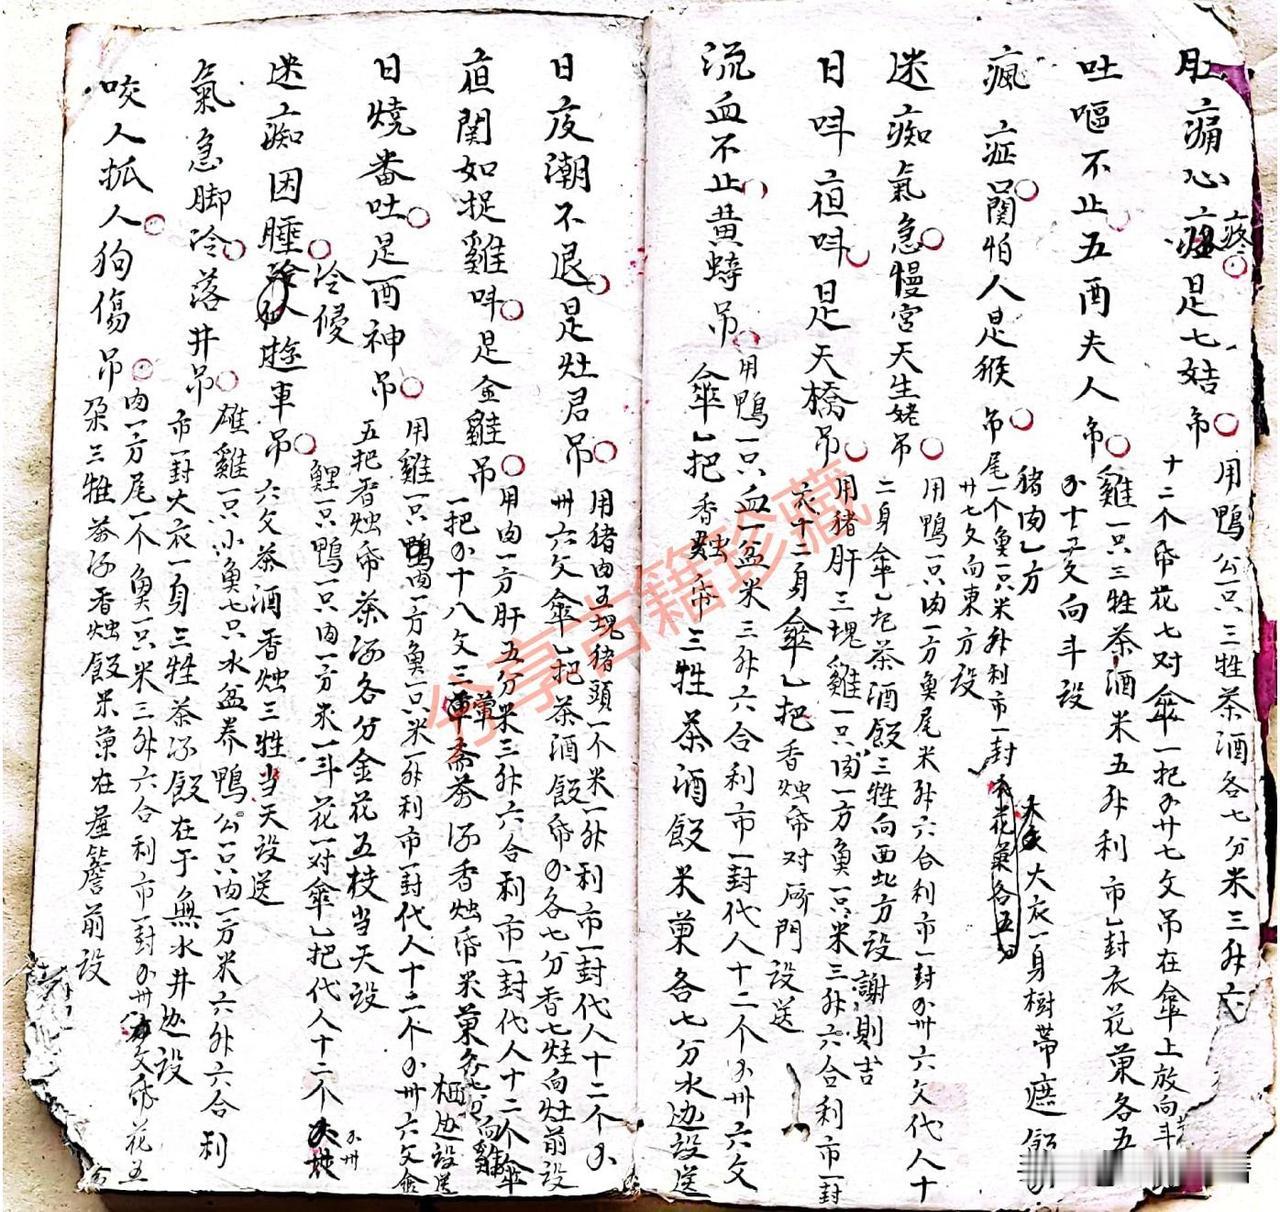 肚痛心疼是七姑吊
用鴨公只三牲茶酒各七分米三升六
十二个帋花七对傘一把廿七文吊在傘上放向斗
吐嘔不止五酉夫人吊
雞一只三牲茶酒米五升利市乙封衣花菓各五
十二文向斗設
瘋症關怕人是猴吊
猪肉乙方
尾一个魚一只米升利市一封
大衣一身樹帶遮
廿七文向東方設
迷痴氣急慢宮天生姥吊
用鴨一只肉一方魚尾米升六合利市一封卅六文代人十
二身傘乙把茶酒飯三牲向西北方設謝則吉
日呌夜呌是天橋吊
用猪肝三塊雞一只肉一方魚一只米三升六合利市一封
衣十二身傘乙把香燭帋对磨門設送
流血不止黄蜞吊
用鴨一只血一盆米三升六合利市一封代人十二个卅六文
傘乙把香燭帋三牲茶酒飯米菓各七分水边設送
日夜潮不退是灶君吊
用猪肉五塊猪頭一个米一升利市一封代人十二个
卅六文傘乙把茶酒飯帋各七分香七炷向灶前設
夜関如捉雞呌是金雞吊
用肉一方肝五分米三升六合利市一封代人十二个傘
一把十八文三葷斋茶酒香燭帋米菓各七向雞栖边設送
日燒番吐是酉神吊
用雞一只鴨肉一方魚一只米一升利市一封代人十二个卅六文金
五把香燭帋茶酒各分金花五枝当天設
迷痴因睡冷侵人𨒪車吊
鯉一只鴨一只肉一方米一斗花一对傘乙把代人十二个卅
六文茶酒香燭三牲当天設送
氣急脚冷落井吊
雄雞一只小魚七只水盆养鴨公一只肉一方米六升六合利
市一封大衣一身三牲茶酒飯在于無水井边設
咬人抓人狗傷吊
肉一方尾一个魚一只米三升六合利市一封卅六文帋花五
朵三牲茶酒香燭飯米菓在屋簷前設
分享古籍珍藏